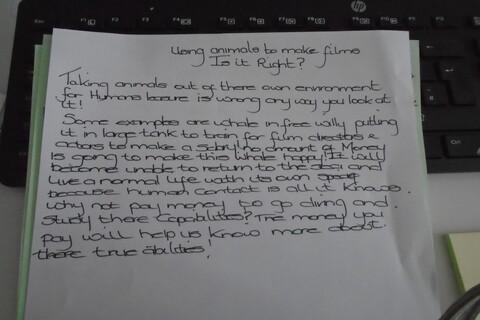 hp
Using animals to make films
Is it Right?
Taking animals out of there own environment
for Humans leasure is wrong any way you look at
it!
Some examples are whale in free willy putting
it in large tank to train for film directors &
actors to make a salary! no amount of Money
is going to make this whale happy! It will
become unable to return to the sea and
live a normal life with its own
because human contact is all it knows.
why not pay money to go diving and
study there capabilities? The money you
pay will help us know more about
there true abilities!